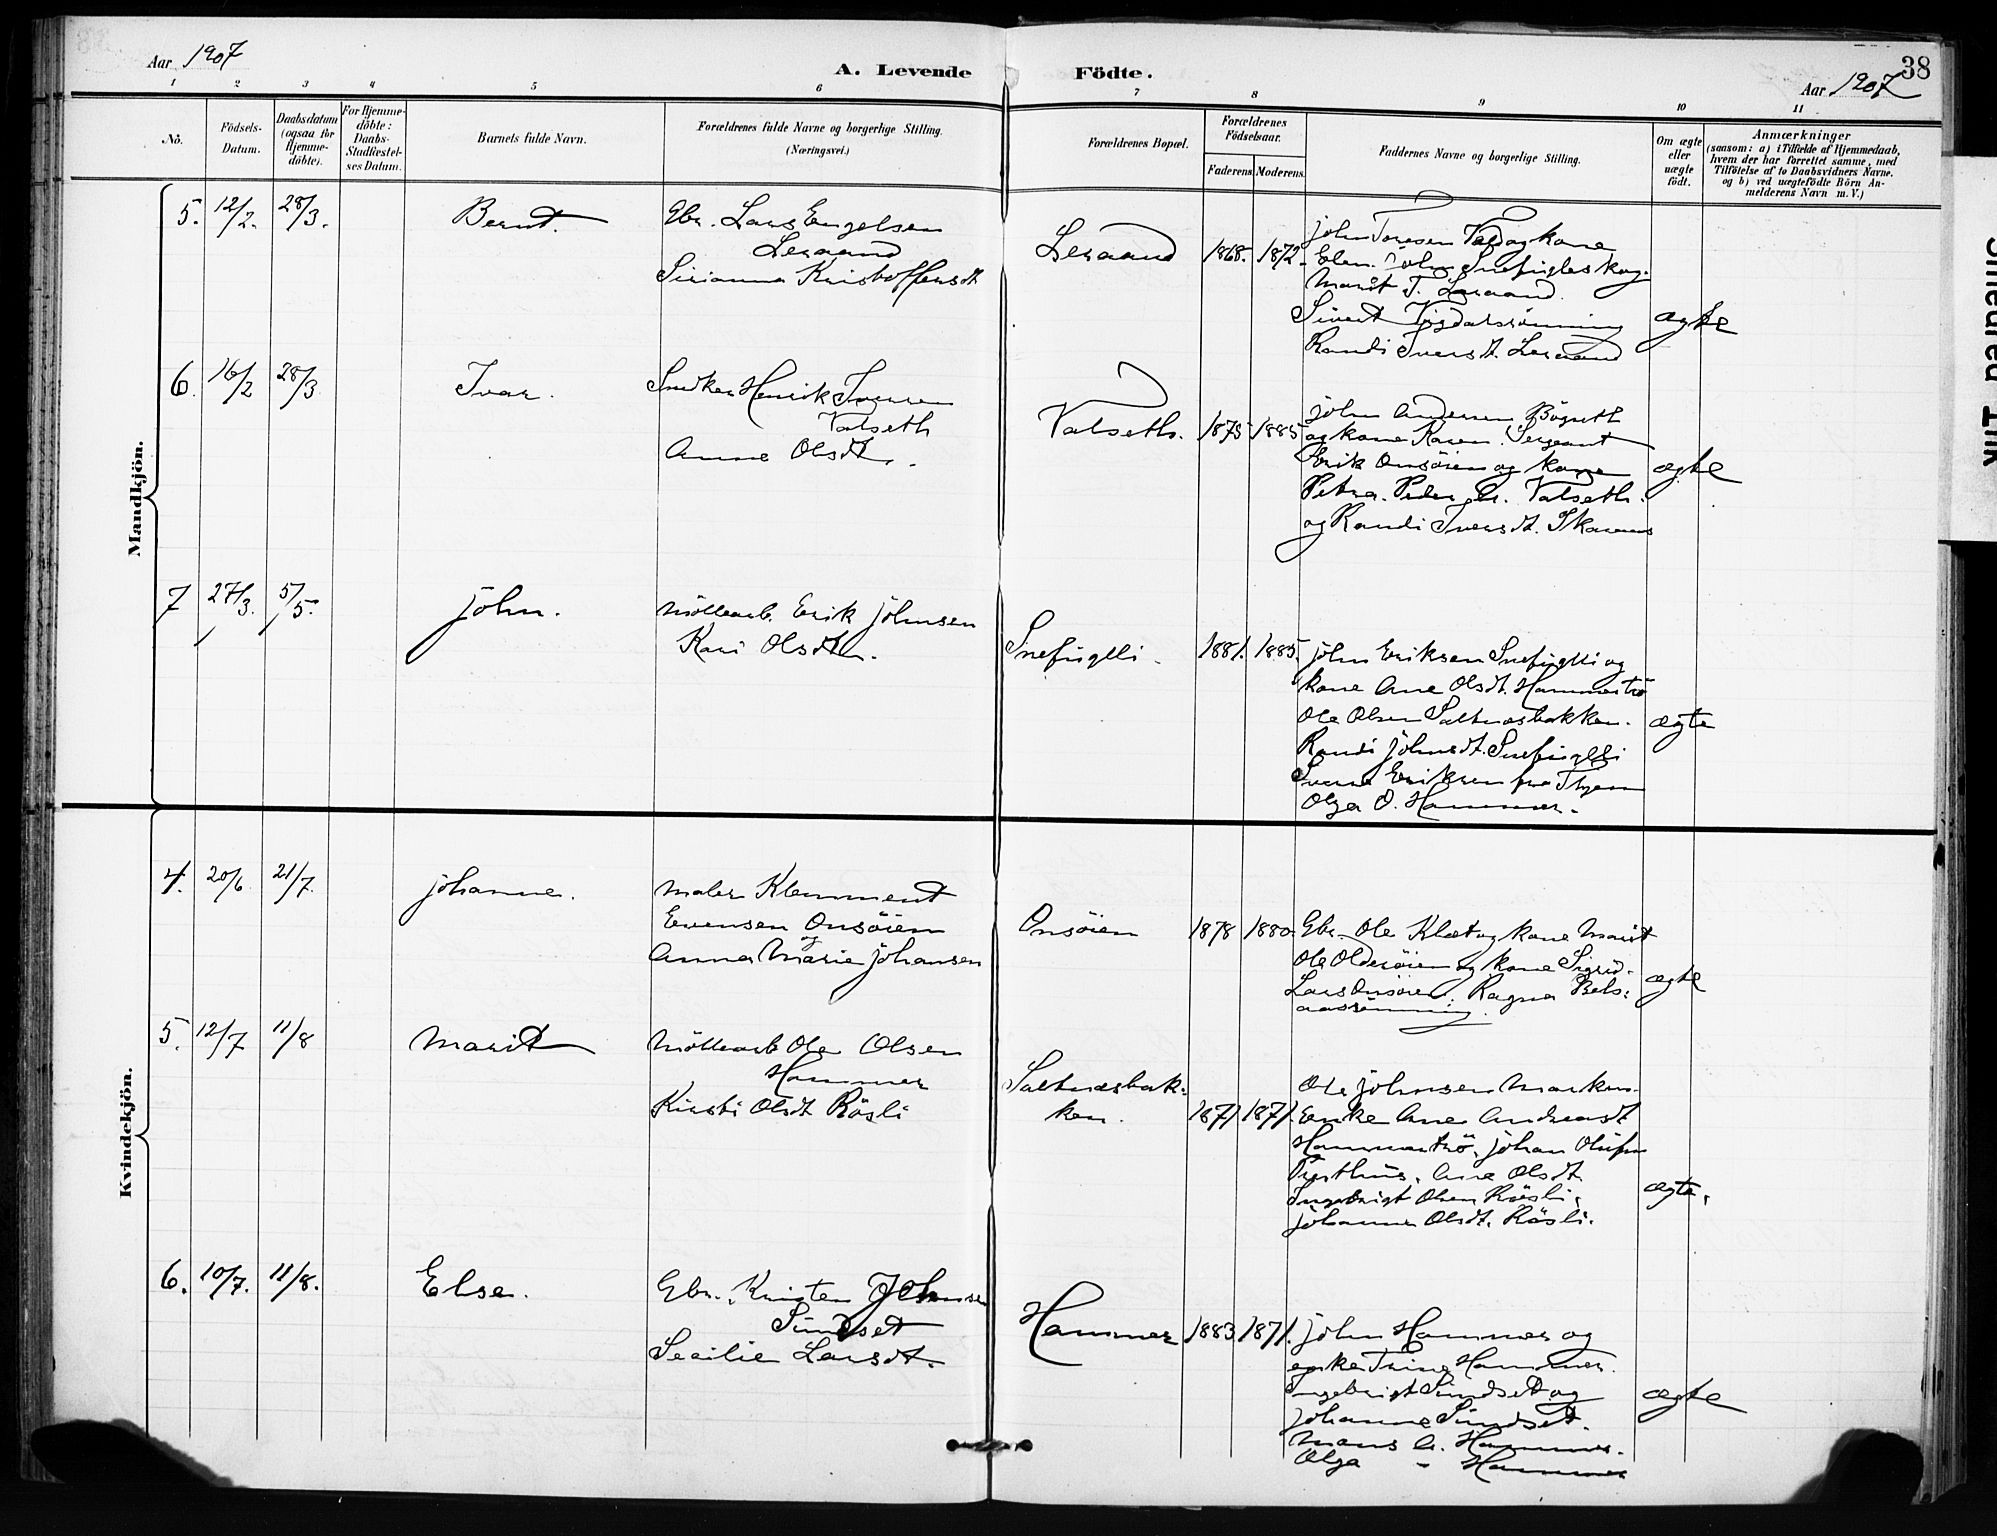 Aar 1907
A. Levende Födte.
38
Aar 1907
1 2 3 4 5 6 7 8 9 10 11
No.
Födsels-
Datum.
Daabsdatum
(ogsaa for
Hjemme-
döbte).
For Hjemme-
döbte:
Daabs-
Stadfæstel-
ses Datum.
Barnets fulde Navn.
Forældrenes fulde Navne og borgerlige Stilling.
(Næringsvei.)
Forældrenes Bopæl.
Forældrenes
Födselsaar.
Faderens. Moderens.
Faddernes Navne og borgerlige Stilling.
Om ægte
eller
uægte
födt.
Anmærkninger
(saasom: a) i Tilfælde af Hjemmedaab,
hvem der har forrettet samme, med
Tilföielse af to Daabsvidners Navne.
og b) ved uægtefödte Börn An-
melderens Navn m. V.)
Mandkjön.
5. 12/2. 28/3. Bernt.
Gbr. Lars Engelsen
Leraand
Sirianna Kristoffersdt
Leraand 1868. 1872.
John Toresen Vold og kone
Elen. John Snefugleskog.
Marit T. Leraand.
Sivert
Randi Iversdt. Leraand
ægte
6. 16/2 28/3 Ivar.
Snedker Henrik Iversen
Valseth
Anne Olsdt.
Valseth. 1875 1885
John Andersen Bögseth
og kone Karen. Sergeant
Erik Onsöien og kone
Petra. Peder gbr. Valseth.
og Randi Iversdt. Skarnes
ægte
7 27/3. 5/5. John.
Möllearb. Erik Johnsen
Kari Olsdtr.
Snefuglli. 1881. 1885.
John Eriksen Snefuglli og
kone Ane Olsdt. Hammertrö
Ole Olsen Saltnesbakken.
Randi Johnsdt. Snefuglli
Eriksen fra Thjem
Olga O. Hammer.
ægte
Kvindekjön.
4. 20/6 21/7. Johanne.
Maler Klemment
Evensen Onsöien
og
Anna Marie Johansen
Onsöien 1878 1880.
Gbr. Ole Klæt og kone Marit
Ole Oldersöien og kone Sigrid.
Lars Onsöien. Ragna Bels-
aasrönning.
ægte
5. 12/7 11/8 Marit
Möllearb Ole Olsen
Hammer
Kirsti Olsdt Rösli
Saltnesbak-
ken. 1871 1871.
Ole Johnsen Markus-
Enke Ane Andreasdt
Hammertrö. Johan Olufsen
Presthus. Ane Olsdt
Ingebrigt Olsen Rösli.
Johanna Olsdt. Rösli.
ægte.
6. 10/7. 11/8. Else.
Gbr. Kristen Johnsen
Sundset
Secilie Larsdt.
Hammer 1883 1871.
John Hammer og
enke Trine Hammer.
Ingebrigt Sundset og
Johanne Sundset.
Mons A. Hammer.
Olga - Hammer
ægte